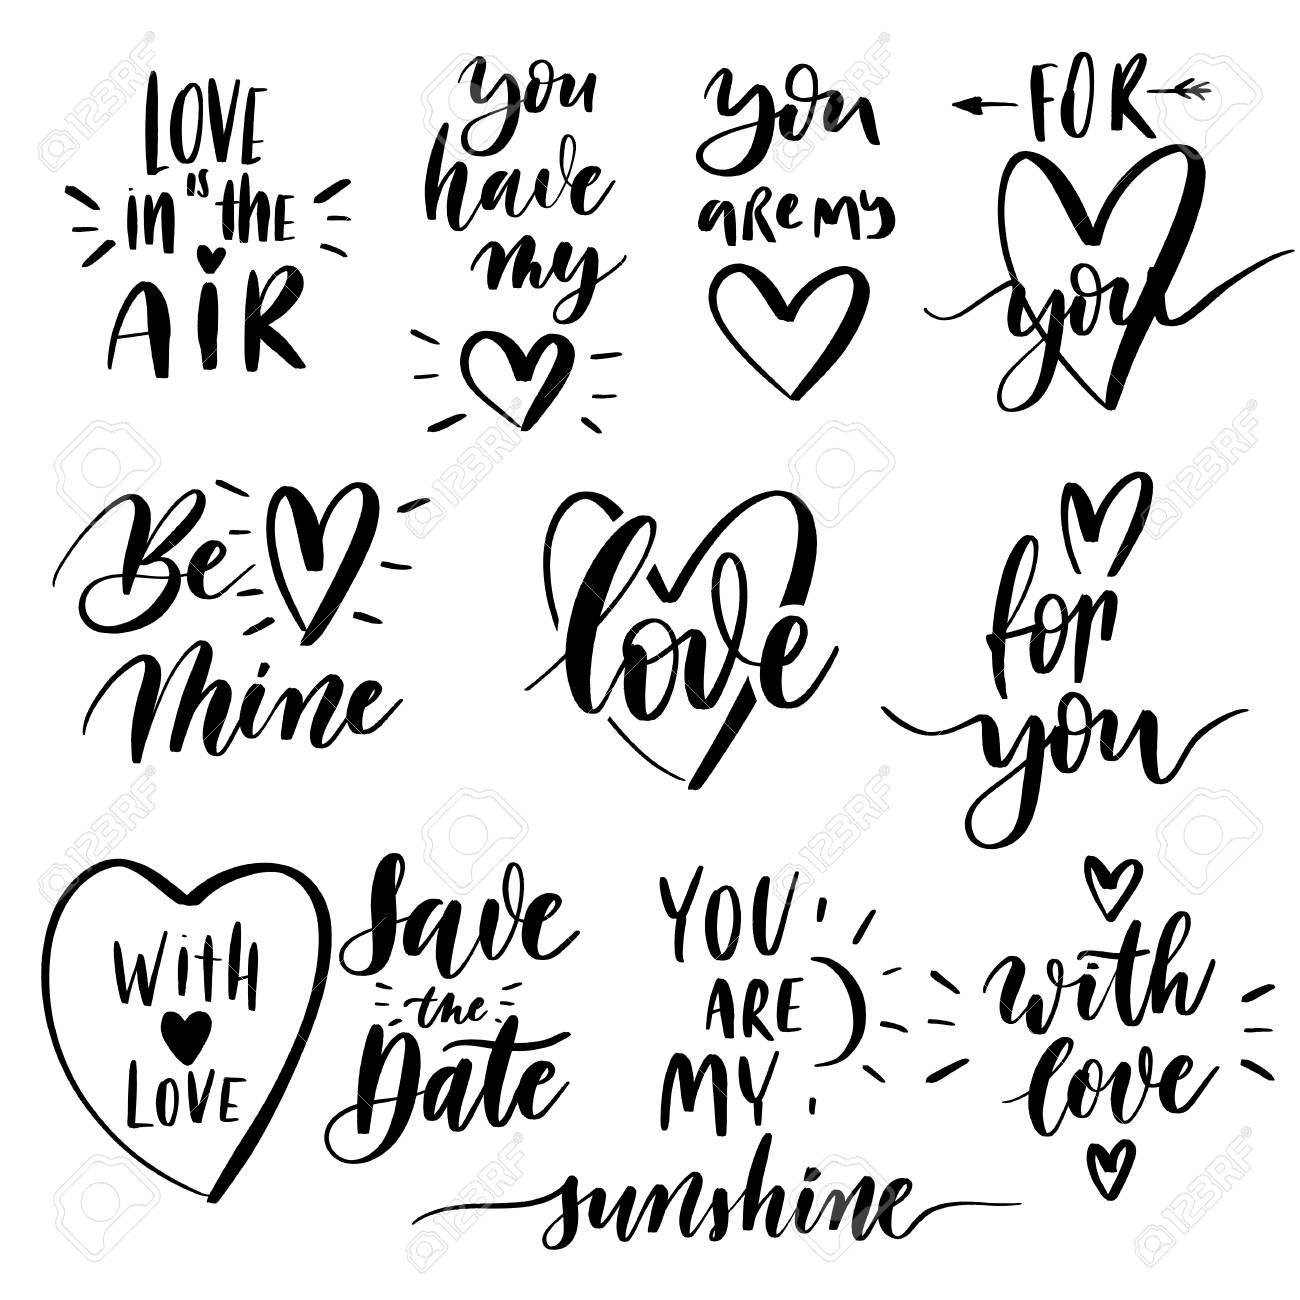 LOVE
is
in the
AiR
you
have
my
you
aRe my
FOR
you
Be
Mine
love
for
you
WitH
LOVE
Save
the
Date
YOU
ARE
MY
sunshine
with
love
123RF